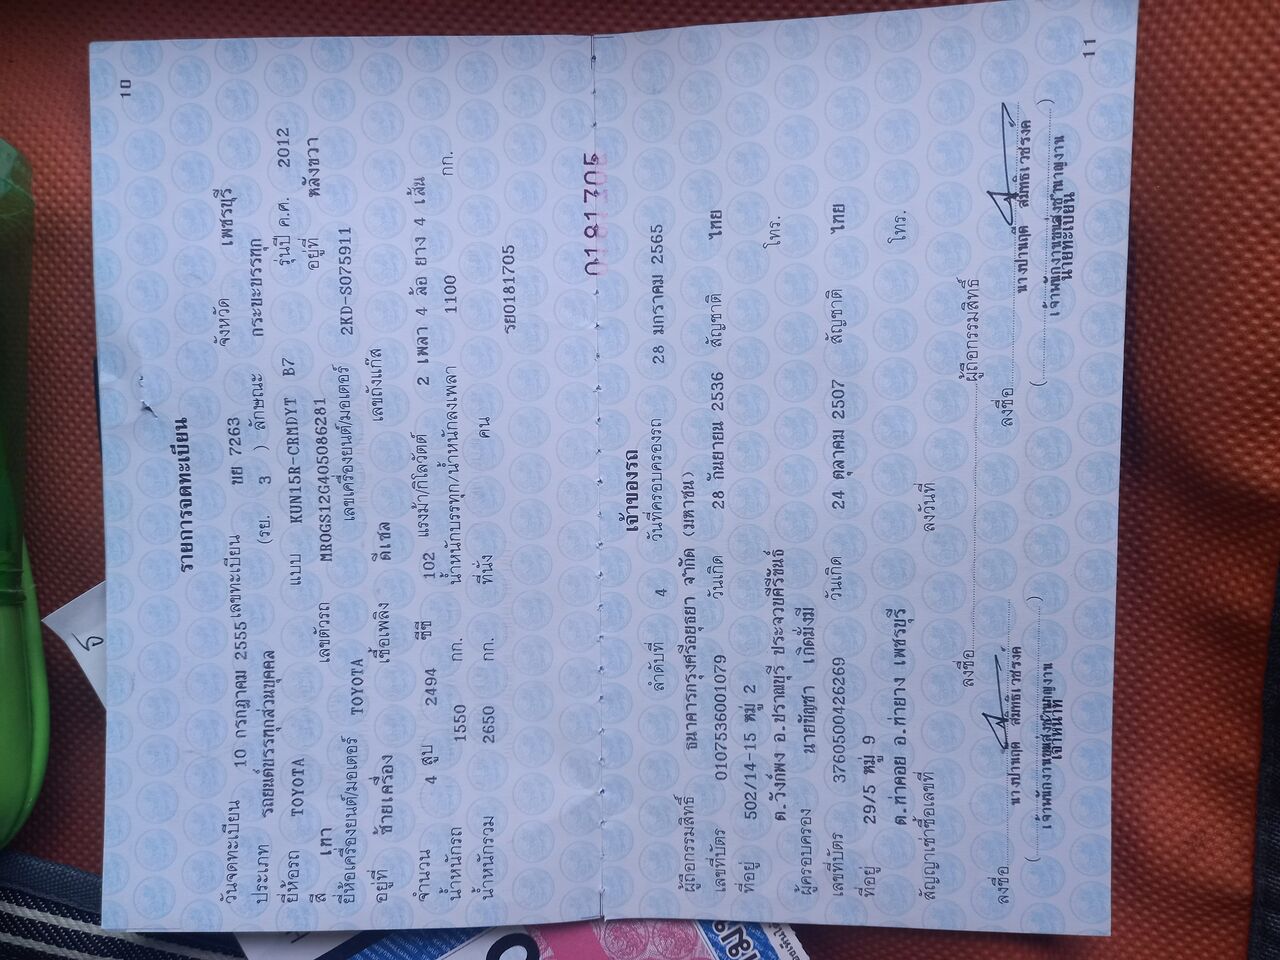 10
รายการจดทะเบียน
วันจดทะเบียน 10 กรกฎาคม 2555 เลขทะเบียน ขย 7263 จังหวัด เพชรบุรี
ประเภท รถยนต์บรรทุกส่วนบุคคล (รย. 3 ) ลักษณะ กระบะบรรทุก
ยี่ห้อรถ TOYOTA แบบ KUN15R-CRMDYT B7 รุ่นปี ค.ศ. 2012
สี เทา เลขตัวรถ MR0GS12G405086281 อยู่ที่ หลังขวา
ยี่ห้อเครื่องยนต์/มอเตอร์ TOYOTA เลขเครื่องยนต์/มอเตอร์ 2KD-S075911
อยู่ที่ ซ้ายเครื่อง เชื้อเพลิง ดีเซล เลขถังแก๊ส
จำนวน 4 สูบ 2494 ซีซี 102 แรงม้า/กิโลวัตต์ 2 เพลา 4 ล้อ ยาง 4 เส้น
น้ำหนักรถ 1550 กก. น้ำหนักบรรทุก/น้ำหนักลงเพลา 1100 กก.
น้ำหนักรวม 2650 กก. ที่นั่ง คน
รย0181705
0181705
เจ้าของรถ
ลำดับที่ 4 วันที่ครอบครองรถ 28 มกราคม 2565
ผู้ถือกรรมสิทธิ์ ธนาคารกรุงศรีอยุธยา จำกัด (มหาชน)
เลขที่บัตร 0107536001079 วันเกิด 28 กันยายน 2536 สัญชาติ ไทย
ที่อยู่ 502/14-15 หมู่ 2
ต.วังก์พง อ.ปราณบุรี ประจวบคีรีขันธ์ โทร.
ผู้ครอบครอง นายบัญชา เกิดมั่งมี
เลขที่บัตร 3760500426269 วันเกิด 24 ตุลาคม 2507 สัญชาติ ไทย
ที่อยู่ 29/5 หมู่ 9
ต.ท่าคอย อ.ท่ายาง เพชรบุรี โทร.
สัญญาเช่าซื้อเลขที่ ลงวันที่
ลงชื่อ ผู้ถือกรรมสิทธิ์
ลงชื่อ ลงชื่อ
นางปานฤดี สมิทธิเวชรงค์ นางปานฤดี สมิทธิเวชรงค์
( ) ( )
เจ้าพนักงานขนส่งชำนาญงาน เจ้าพนักงานขนส่งชำนาญงาน
เจ้าหน้าที่ นายทะเบียน
11